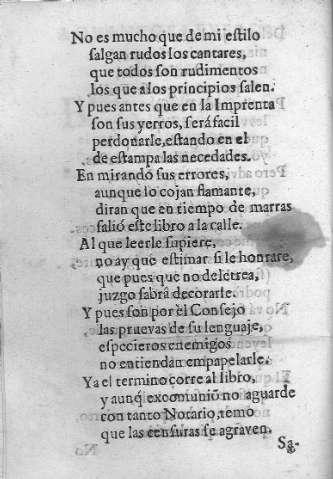 No es mucho que de mi estilo
salgan rudos los cantares,
que todos son rudimentos
los que a los principios salen.
Y pues antes que en la Imprenta
son sus yerros, será facil
perdonarle, estando en el
de estampa las necedades.
En mirando sus errores,
aunque lo cojan flamante,
diran que en tiempo de marras
salió este libro a la calle.
Al que leerle supiere,
no ay que estimar si le honrare,
que pues que no deletrea,
juzgo sabrá decorarle.
Y pues son por el Consejo
las pruevas de su lenguaje,
especieros enemigos
no entiendan empapelarle.
Ya el termino corre al libro,
y aunq̃ excomunió no aguarde
con tanto Notario, temo
que las censuras se agraven.
Sa-